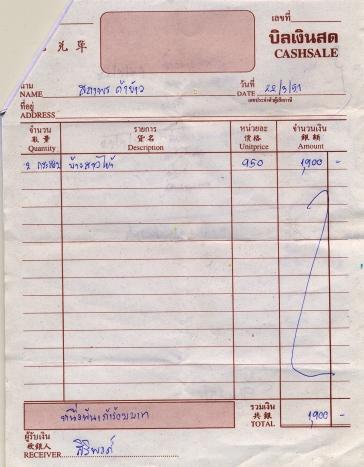 เลขที่
บิลเงินสด
CASHSALE
兑单
นาม
NAME
สถาพร ค้าข้าว
วันที่
DATE
22/3/51
เลขประจำตัวผู้เสียภาษี
ที่อยู่
ADDRESS
จำนวน 數量 Quantity
รายการ 貨名 Description
หน่วยละ 價格 Unitprice
จำนวนเงิน 銀額 Amount
2 กระสอบ ข้าวสาร 950 1,900 -
หนึ่งพันเก้าร้อยบาท
รวมเงิน 共銀 TOTAL
1,900 -
ผู้รับเงิน
收銀人
RECEIVER